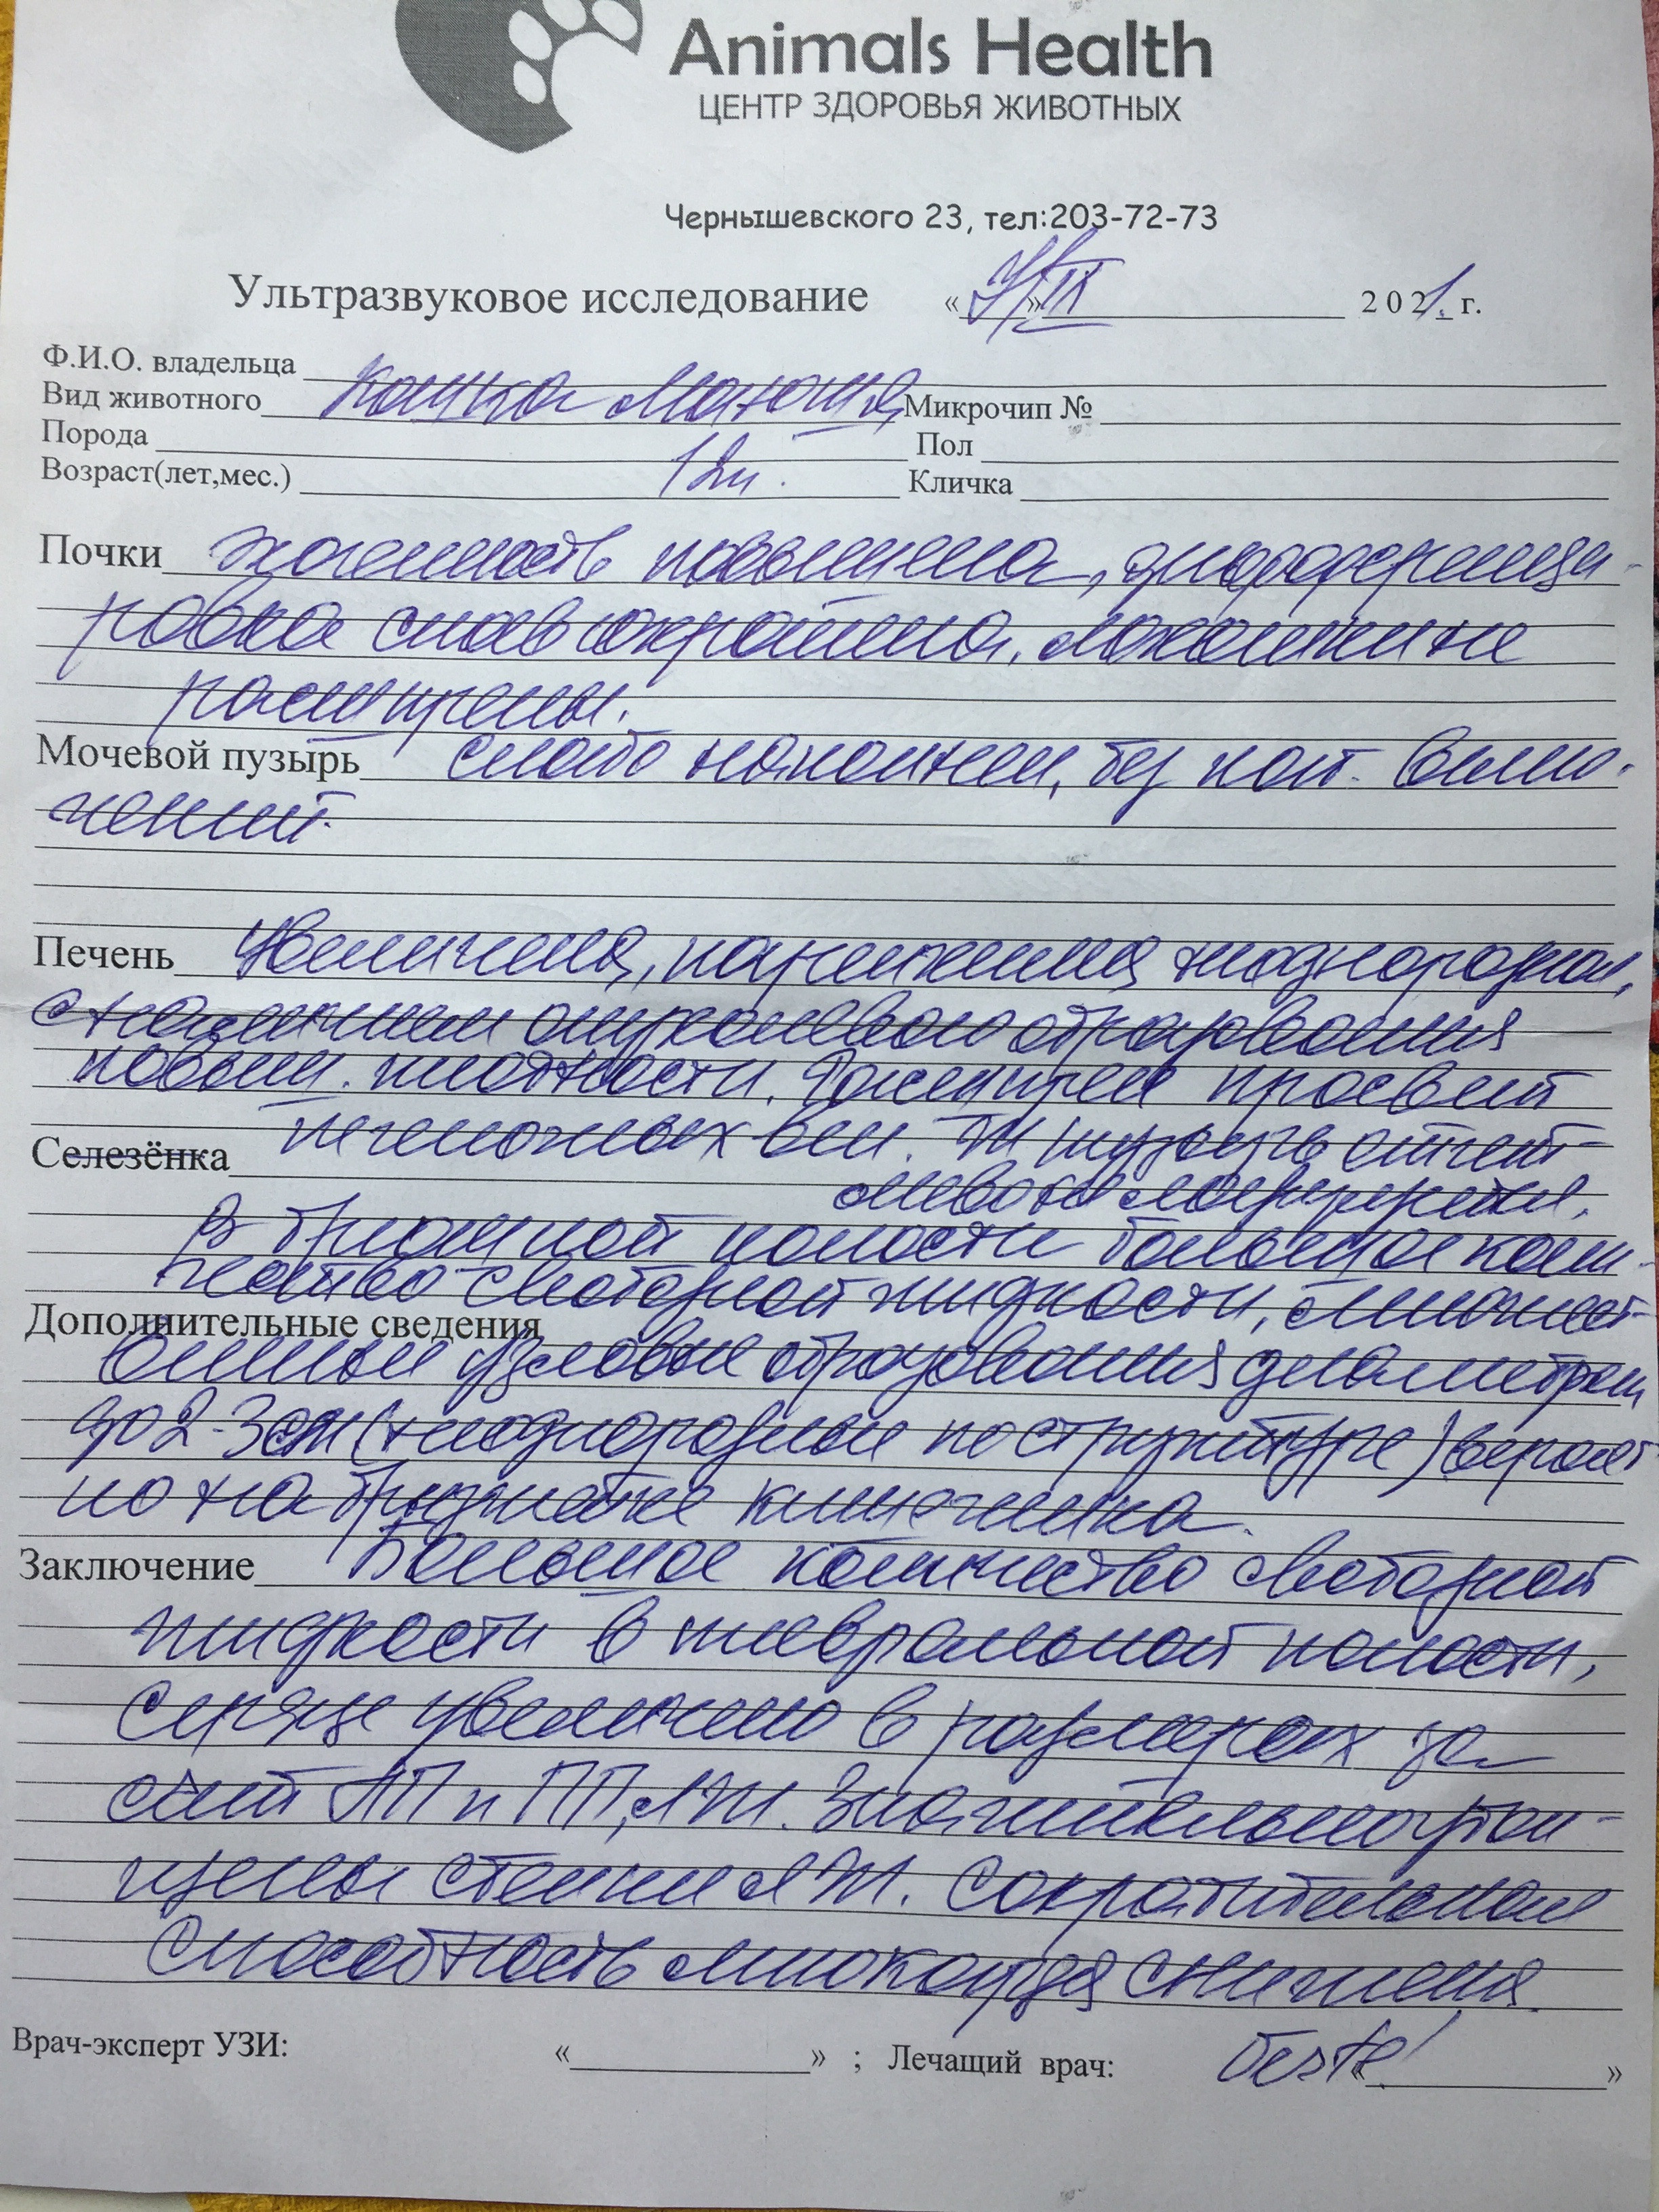 Animals Health
ЦЕНТР ЗДОРОВЬЯ ЖИВОТНЫХ
Чернышевского 23, тел:203-72-73
Ультразвуковое исследование « » IX 2021 г.
Ф.И.О. владельца
Вид животного кошка Манюня Микрочип №
Порода Пол
Возраст(лет,мес.) 12л. Кличка
Почки эхогенность повышена, дифференци-
ровка слоев сохранена, лоханки не
расширены.
Мочевой пузырь слабо наполнен, без пат. включ-
чений.
Печень увеличена, паренхима неоднородная,
с наличием опухолевого образования
повыш. плотности. Расширен просвет
печеночных вен. Ж. пузырь отчет-
Селезёнка
ливо не лоцируется.
В брюшной полости большое коли-
чество свободной жидкости, множест-
Дополнительные сведения
венные узловые образования диаметром
до 2-3см (неоднородные по структуре) вероят
но на брыжейке кишечника.
Заключение Большое количество свободной
жидкости в плевральной полости,
Сердце увеличено в размерах за
счет ЛП и ПП, ЛЖ. Значительно утол-
щены стенки ЛЖ. Сократительная
способность миокарда снижена.
Врач-эксперт УЗИ: « » ; Лечащий врач: « »